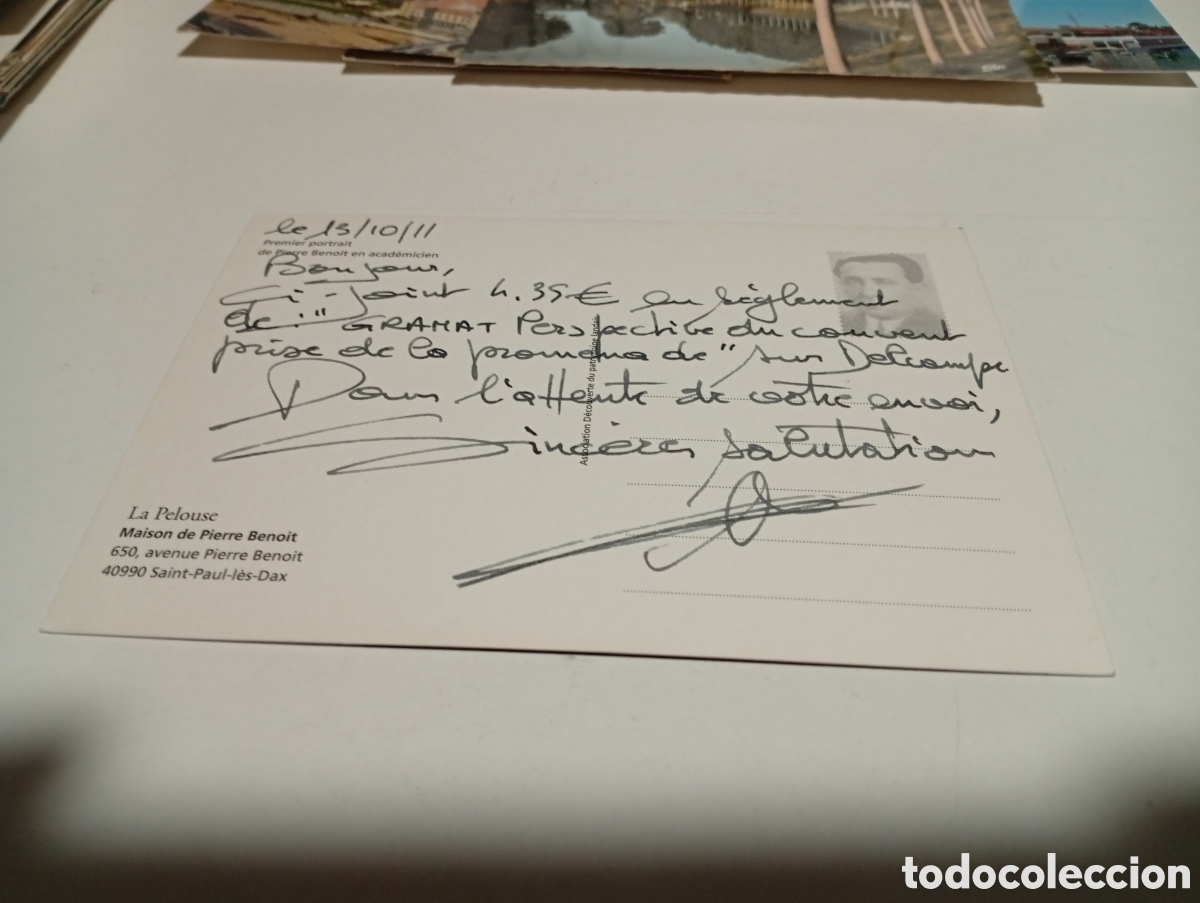 le 13/10/11
Premier portrait
de Pierre Benoit en académicien
Bonjour,
Ci-joint 4.35€ en règlement
de: " GRAMAT Perspective du couvent
prise de la promenade" sur Delcampe
Dans l'attente de votre envoi,
Sincères salutations
Association Découverte du patrimoine landais
La Pelouse
Maison de Pierre Benoit
650, avenue Pierre Benoit
40990 Saint-Paul-lès-Dax
todocoleccion